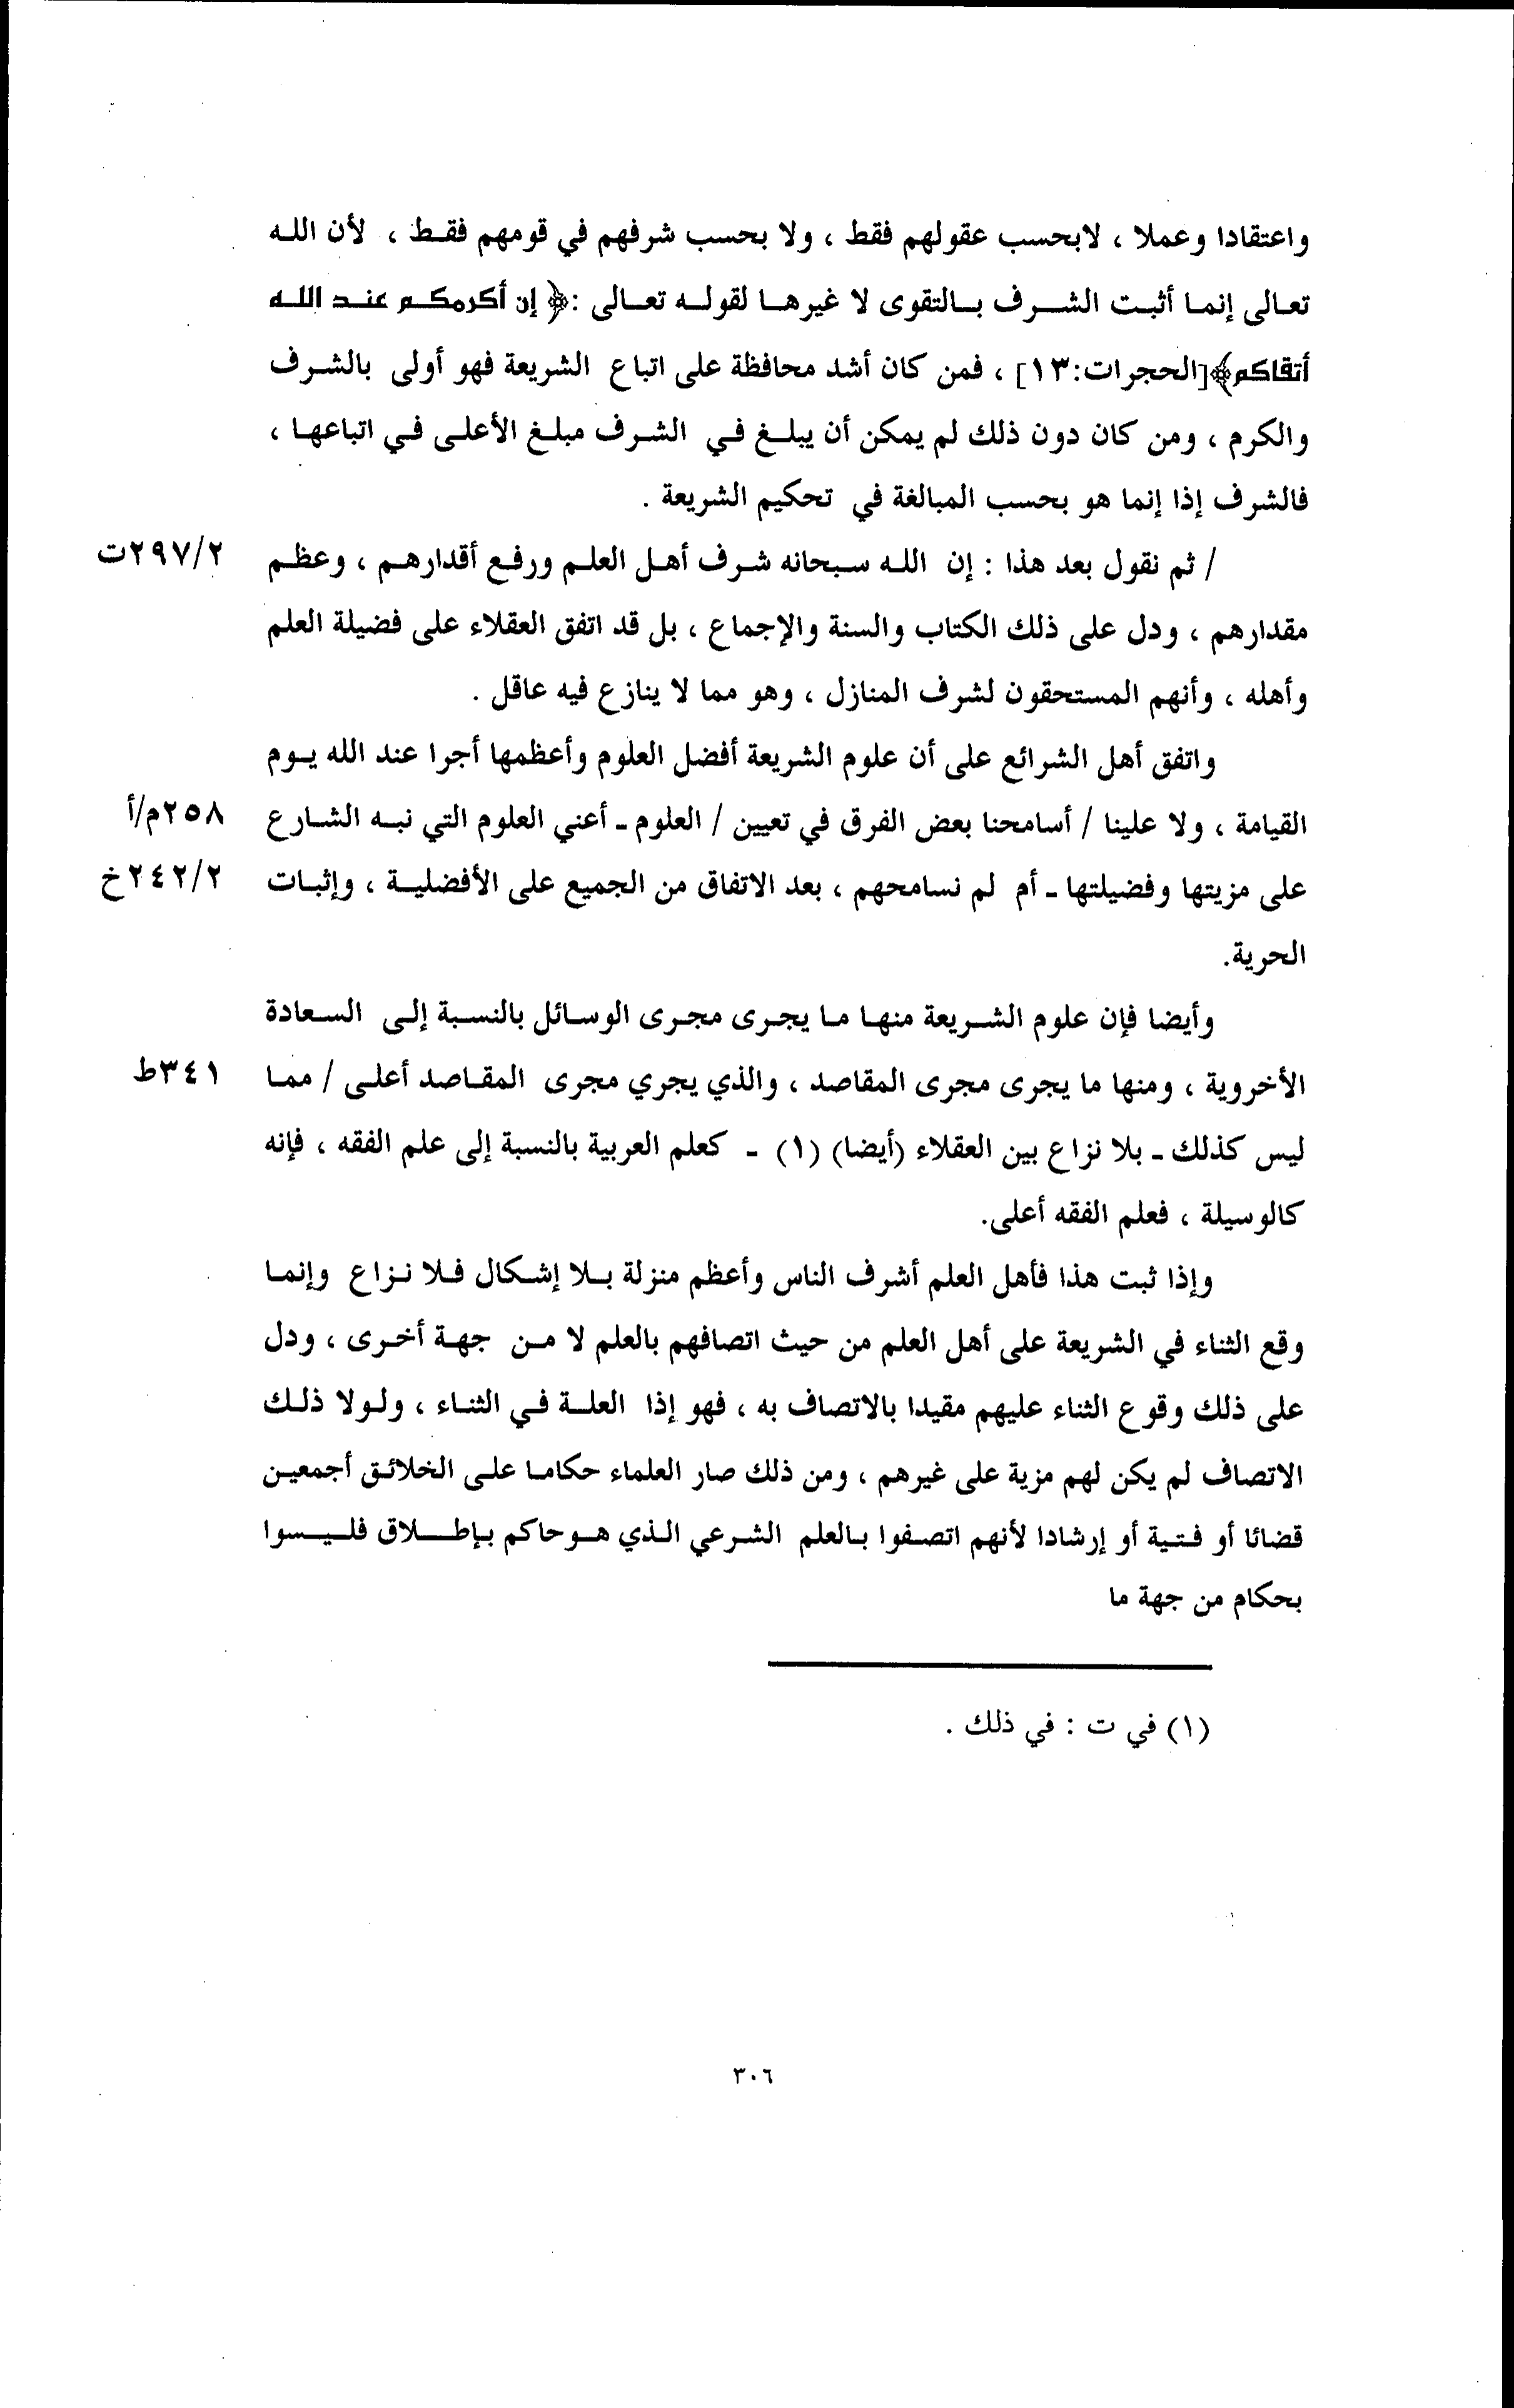 واعتقادا وعملا ، لابحسب عقولهم فقط ، ولا بحسب شرفهم في قومهم فقط ، لأن الله
تعالى إنما أثبت الشرف بالتقوى لا غيرها لقوله تعالى :﴿ إن أكرمكم عند الله
أتقاكم﴾[الحجرات:١٣] ، فمن كان أشد محافظة على اتباع الشريعة فهو أولى بالشرف
والكرم ، ومن كان دون ذلك لم يمكن أن يبلغ في الشرف مبلغ الأعلى في اتباعها ،
فالشرف إذا إنما هو بحسب المبالغة في تحكيم الشريعة .
/ ثم نقول بعد هذا : إن الله سبحانه شرف أهل العلم ورفع أقدارهم ، وعظم ٢٩٧/٢ت
مقدارهم ، ودل على ذلك الكتاب والسنة والإجماع ، بل قد اتفق العقلاء على فضيلة العلم
وأهله ، وأنهم المستحقون لشرف المنازل ، وهو مما لا ينازع فيه عاقل .
واتفق أهل الشرائع على أن علوم الشريعة أفضل العلوم وأعظمها أجرا عند الله يوم
القيامة ، ولا علينا / أسامحنا بعض الفرق في تعيين / العلوم ـ أعني العلوم التي نبه الشارع ٢٥٨م/أ
على مزيتها وفضيلتها ـ أم لم نسامحهم ، بعد الاتفاق من الجميع على الأفضلية ، وإثبات ٢٤٢/٢خ
الحرية.
وأيضا فإن علوم الشريعة منها ما يجرى مجرى الوسائل بالنسبة إلى السعادة
الأخروية ، ومنها ما يجرى مجرى المقاصد ، والذي يجري مجرى المقاصد أعلى / مما ٣٤١ط
ليس كذلك ـ بلا نزاع بين العقلاء (أيضا) (١) ـ كعلم العربية بالنسبة إلى علم الفقه ، فإنه
كالوسيلة ، فعلم الفقه أعلى.
وإذا ثبت هذا فأهل العلم أشرف الناس وأعظم منزلة بلا إشكال فلا نزاع وإنما
وقع الثناء في الشريعة على أهل العلم من حيث اتصافهم بالعلم لا من جهة أخرى ، ودل
على ذلك وقوع الثناء عليهم مقيدا بالاتصاف به ، فهو إذا العلة في الثناء ، ولولا ذلك
الاتصاف لم يكن لهم مزية على غيرهم ، ومن ذلك صار العلماء حكاما على الخلائق أجمعين
قضائا أو فتية أو إرشادا لأنهم اتصفوا بالعلم الشرعي الذي هو حاكم بإطلاق فليسوا
بحكام من جهة ما
(١) في ت : في ذلك .
٣٠٦